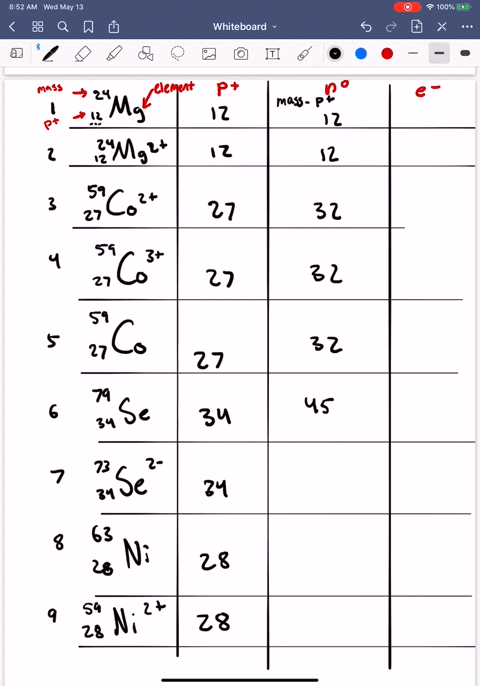 8:52 AM Wed May 13
100%
Whiteboard
mass → ²⁴Mg element p+ n⁰ e-
1 p+ → ₁₂ 12 mass - p+ 12
2 ²⁴₁₂Mg²⁺ 12 12
3 ⁵⁹₂₇Co²⁺ 27 32
4 ⁵⁹₂₇Co³⁺ 27 32
5 ⁵⁹₂₇Co 27 32
6 ⁷⁹₃₄Se 34 45
7 ⁷³₃₄Se²⁻ 34
8 ⁶³₂₈Ni 28
9 ⁵⁹₂₈Ni²⁺ 28